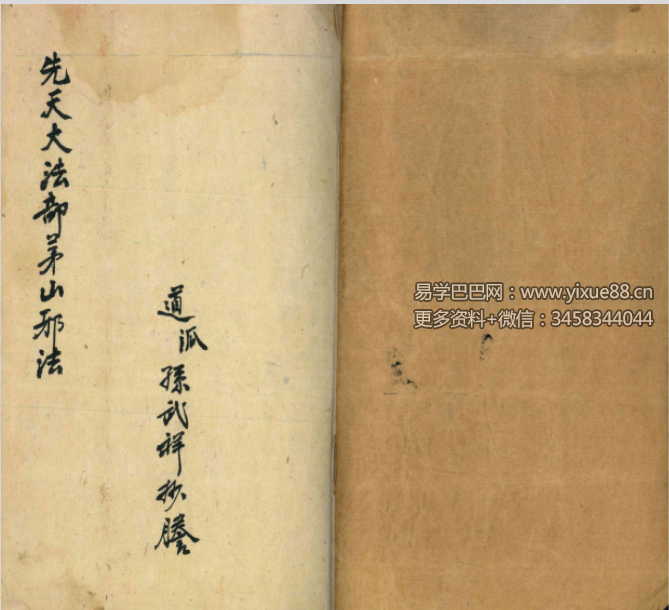 先天大法部茅山邪法
道泒孫武祥抄謄
易学巴巴网：www.yixue88.cn
更多资料+微信：3458344044